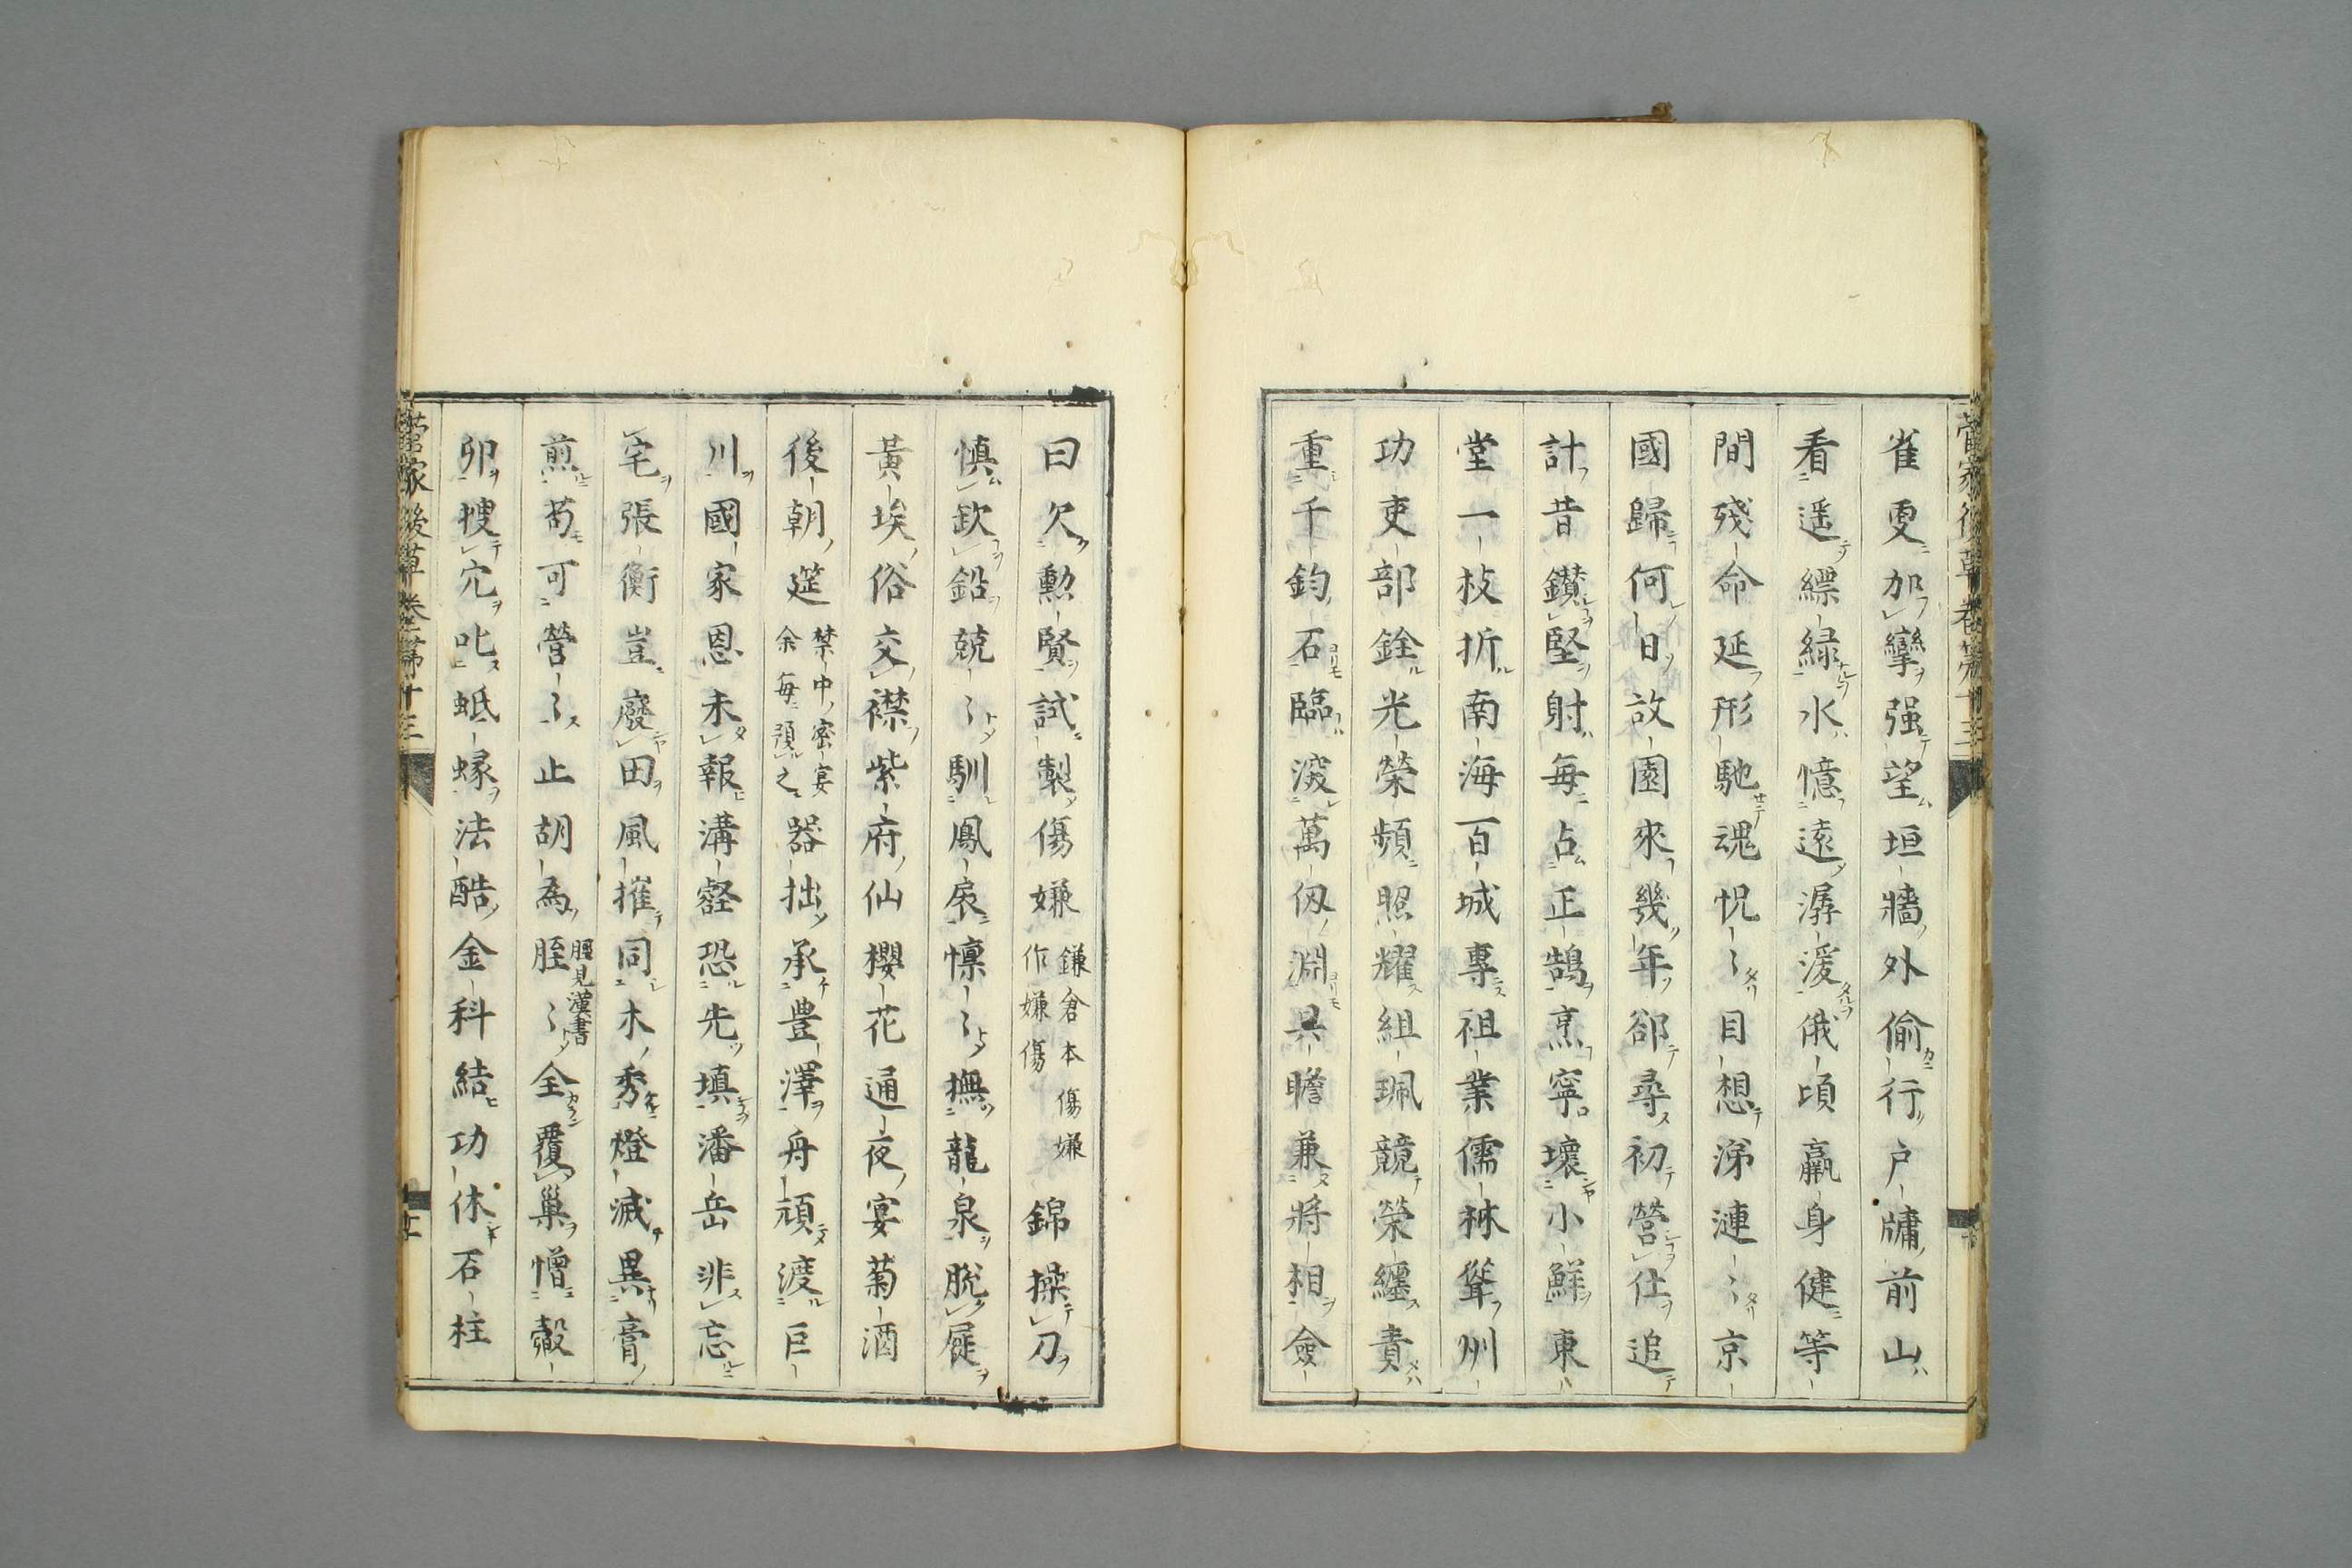 雀更加攣强望垣牆外偷行戶牗前山
看遥縹緑水憶遠潺湲俄頃羸身健等
間殘命延形馳魂怳〻目想涕漣〻京
國歸何日故園來幾年郤尋初營仕追
計昔鑚堅射每占正鵠烹寧壞小鮮東
堂一枝折南海百城專祖業儒林聳州
功吏部銓光榮頻照耀組珮競榮纒責
重千鈞石臨深萬仭淵具瞻兼將相僉
曰欠勲賢試製傷嫌
鎌倉本傷嫌
作嫌傷
錦操刀
慎欽鉛兢〻馴鳳扆懍〻撫龍泉脱屣
黃埃俗交襟紫府仙櫻花通夜宴菊酒
後朝筵
禁中密宴
余每預之
器拙承豊澤舟頑渡巨
川國家恩未報溝壑恐先填潘岳非忘
宅張衡豈廢田風摧同木秀燈滅異膏
煎苟可營〻止胡為脛〻全覆巢憎鷇
脛見漢書
卵搜穴叱蚳蝝法酷金科結功休石柱
菅家後草 卷第十三